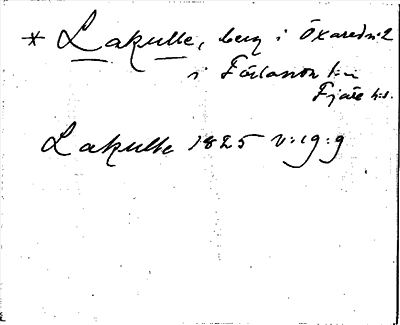 * Lakulle, berg i Öxared n:2
i Förlanda s:n
Fjäre h:d.
Lakulle 1825 v:19:9